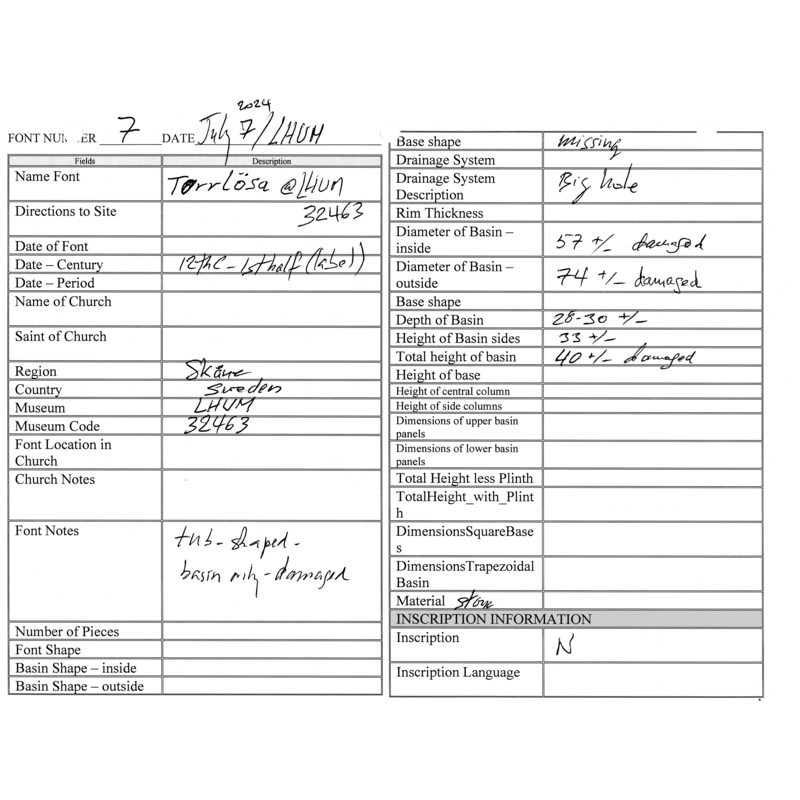 2024
FONT NUMBER 7 DATE July 7/LHUM
Fields Description
Name Font Torrlösa @LHUM
Directions to Site 32463
Date of Font
Date – Century 12thC – 1st half (label)
Date – Period
Name of Church
Saint of Church
Region Skåne
Country Sweden
Museum LHUM
Museum Code 32463
Font Location in
Church
Church Notes
Font Notes tub-shaped-
basin only-damaged
Number of Pieces
Font Shape
Basin Shape – inside
Basin Shape – outside
Base shape missing
Drainage System
Drainage System Big hole
Description
Rim Thickness
Diameter of Basin –
inside 57 +/– damaged
Diameter of Basin –
outside 74 +/– damaged
Base shape
Depth of Basin 28-30 +/–
Height of Basin sides 33 +/–
Total height of basin 40 +/– damaged
Height of base
Height of central column
Height of side columns
Dimensions of upper basin
panels
Dimensions of lower basin
panels
Total Height less Plinth
TotalHeight_with_Plint
h
DimensionsSquareBase
s
DimensionsTrapezoidal
Basin
Material stone
INSCRIPTION INFORMATION
Inscription N
Inscription Language